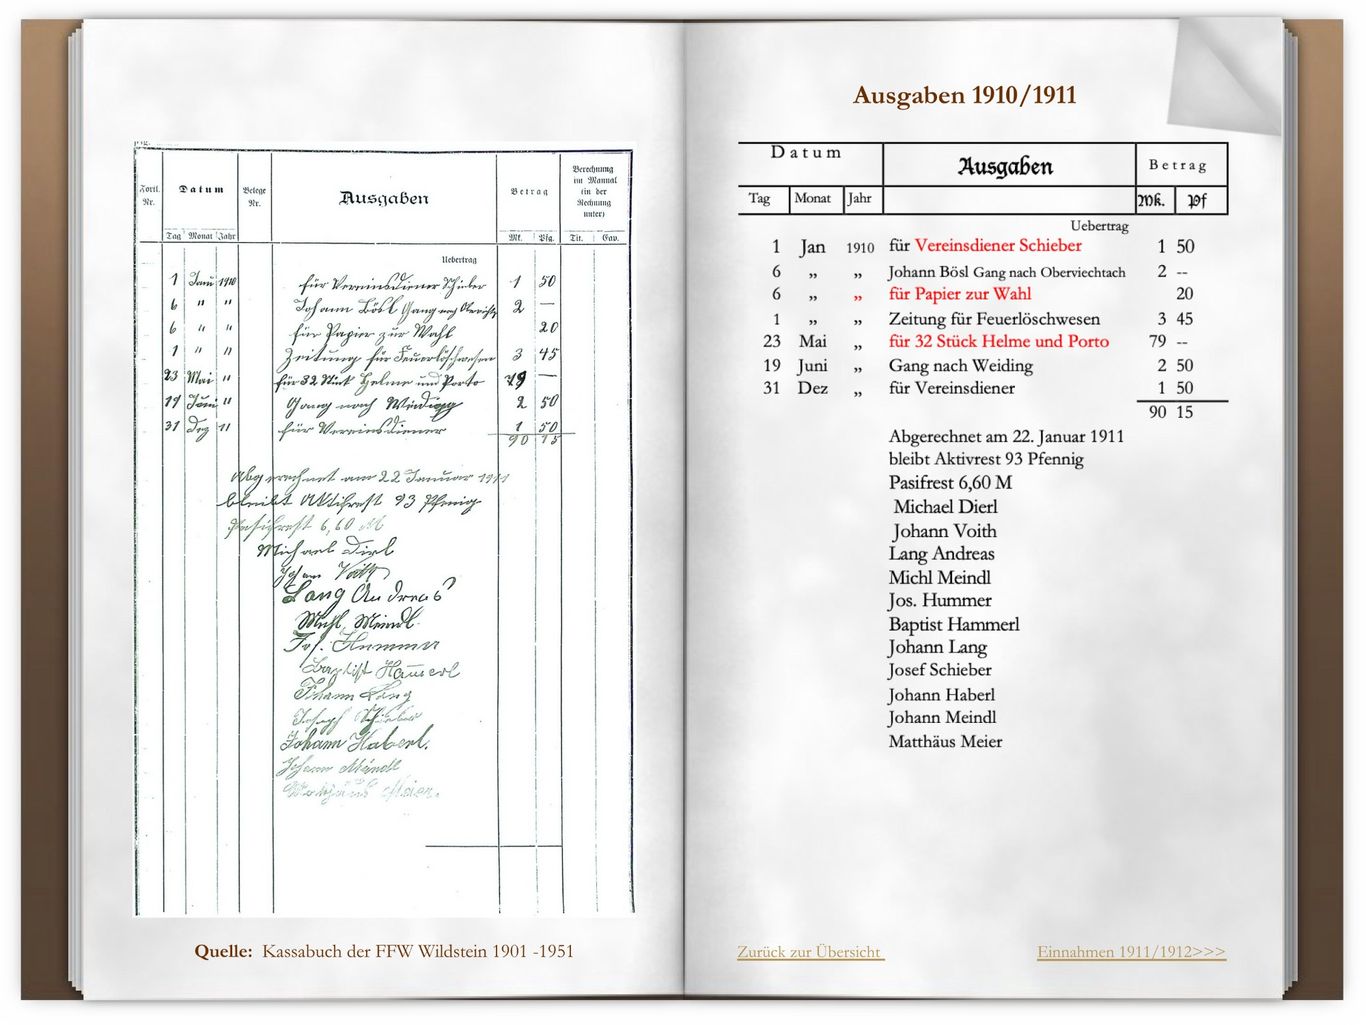 Fortl. Nr.
Datum
Belege Nr.
Ausgaben
Betrag
Berechnung im Manual (in der Rechnung unter)
Tag Monat Jahr
Mk. Pfg. Tit. Cav.
Uebertrag
1 Janu 1910 für Vereinsdiener Schieber 1 50
6 " " Johann Bösl Gang nach 2 —
6 " " für Papier zur Wahl 20
1 " " Zeitung für Feuerlöschwesen 3 45
23 Mai " für 32 Stück Helme und Porto 79 —
19 Juni " Gang nach 2 50
31 Dez 11 für Vereinsdiener 1 50
90 15
Abgerechnet am 22 Januar 1911
bleibt Aktifrest 93 Pfenig
Pasifrest 6,60 M
Michael Dierl
Johann Voith
Lang Andreas
Michl Meindl
Jos. Hummer
Baptist Hammerl
Johann Lang
Joseph Schieber
Johann Haberl.
Johann Meindl
Mathäus Meier.
Quelle: Kassabuch der FFW Wildstein 1901 -1951
Ausgaben 1910/1911
Datum Ausgaben Betrag
Tag Monat Jahr Mk. Pf
Uebertrag
1 Jan 1910 für Vereinsdiener Schieber 1 50
6 „ „ Johann Bösl Gang nach Oberviechtach 2 --
6 „ „ für Papier zur Wahl 20
1 „ „ Zeitung für Feuerlöschwesen 3 45
23 Mai „ für 32 Stück Helme und Porto 79 --
19 Juni „ Gang nach Weiding 2 50
31 Dez „ für Vereinsdiener 1 50
90 15
Abgerechnet am 22. Januar 1911
bleibt Aktivrest 93 Pfennig
Pasifrest 6,60 M
Michael Dierl
Johann Voith
Lang Andreas
Michl Meindl
Jos. Hummer
Baptist Hammerl
Johann Lang
Josef Schieber
Johann Haberl
Johann Meindl
Matthäus Meier
Zurück zur Übersicht
Einnahmen 1911/1912>>>